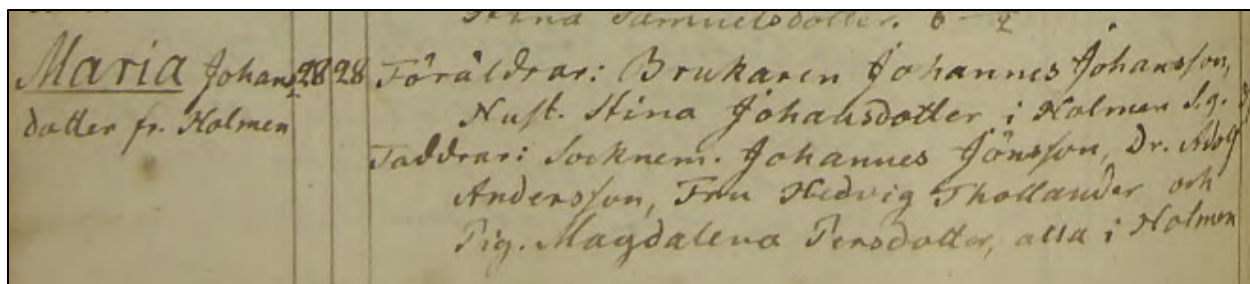 Stina Samuelsdotter. 6
Maria Johans 28 28 Föräldrar: Brukaren Johannes Johansson,
dotter fr. Holmen Hust. Stina Johansdotter i Holmen S.g.
Faddrar: Socknem. Johannes Jönsson, Dr. Adolf
Andersson, Fru Hedvig Thollander och
Pig. Magdalena Persdotter, alla i Holmen